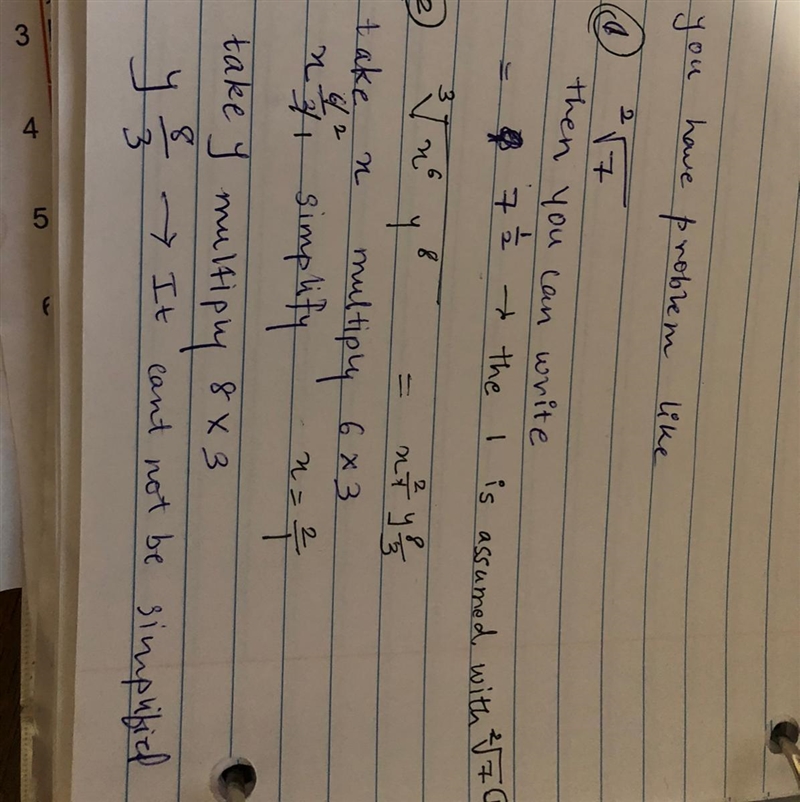 you have problem like
① ²√7
then you can write
= 7^1/2 → the 1 is assumed with ²√7
② ³√x⁶ y⁸ = x^2/1 y^8/3
take x multiply 6 x 3
x^6/3 2/1 simplify x = 2/1
take y multiply 8 x 3
y 8/3 → It cant not be simplified
3
4
5
6